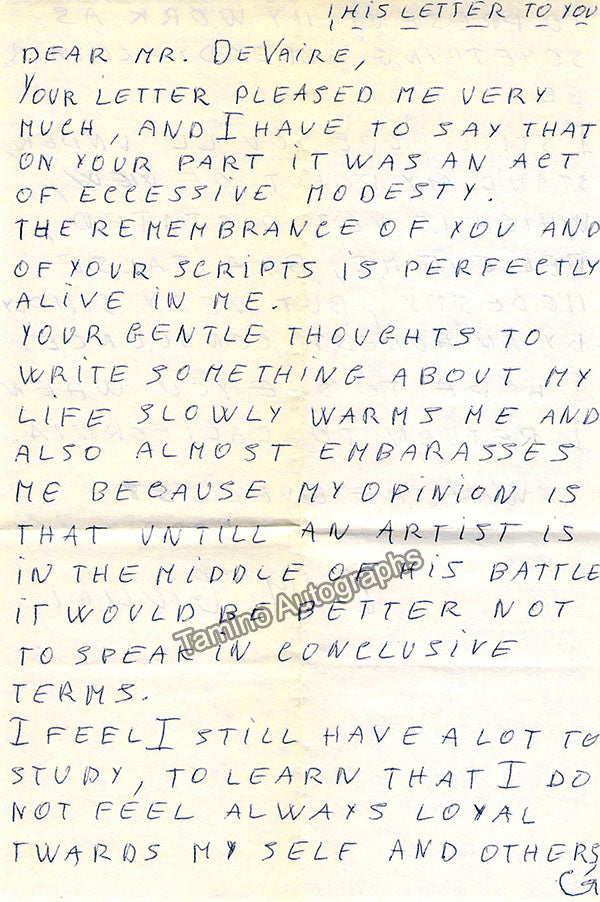 THIS LETTER TO YOU
DEAR MR. DeVAIRE,
YOUR LETTER PLEASED ME VERY
MUCH, AND I HAVE TO SAY THAT
ON YOUR PART IT WAS AN ACT
OF ECCESSIVE MODESTY.
THE REMEMBRANCE OF YOU AND
OF YOUR SCRIPTS IS PERFECTLY
ALIVE IN ME.
YOUR GENTLE THOUGHTS TO
WRITE SOMETHING ABOUT MY
LIFE SLOWLY WARMS ME AND
ALSO ALMOST EMBARASSES
ME BECAUSE MY OPINION IS
THAT UNTILL AN ARTIST IS
IN THE MIDDLE OF HIS BATTLE
IT WOULD BE BETTER NOT
TO SPEAK IN CONCLUSIVE
TERMS.
I FEEL I STILL HAVE A LOT TO
STUDY, TO LEARN THAT I DO
NOT FEEL ALWAYS LOYAL
TWARDS MY SELF AND OTHERS
Tamino Autographs